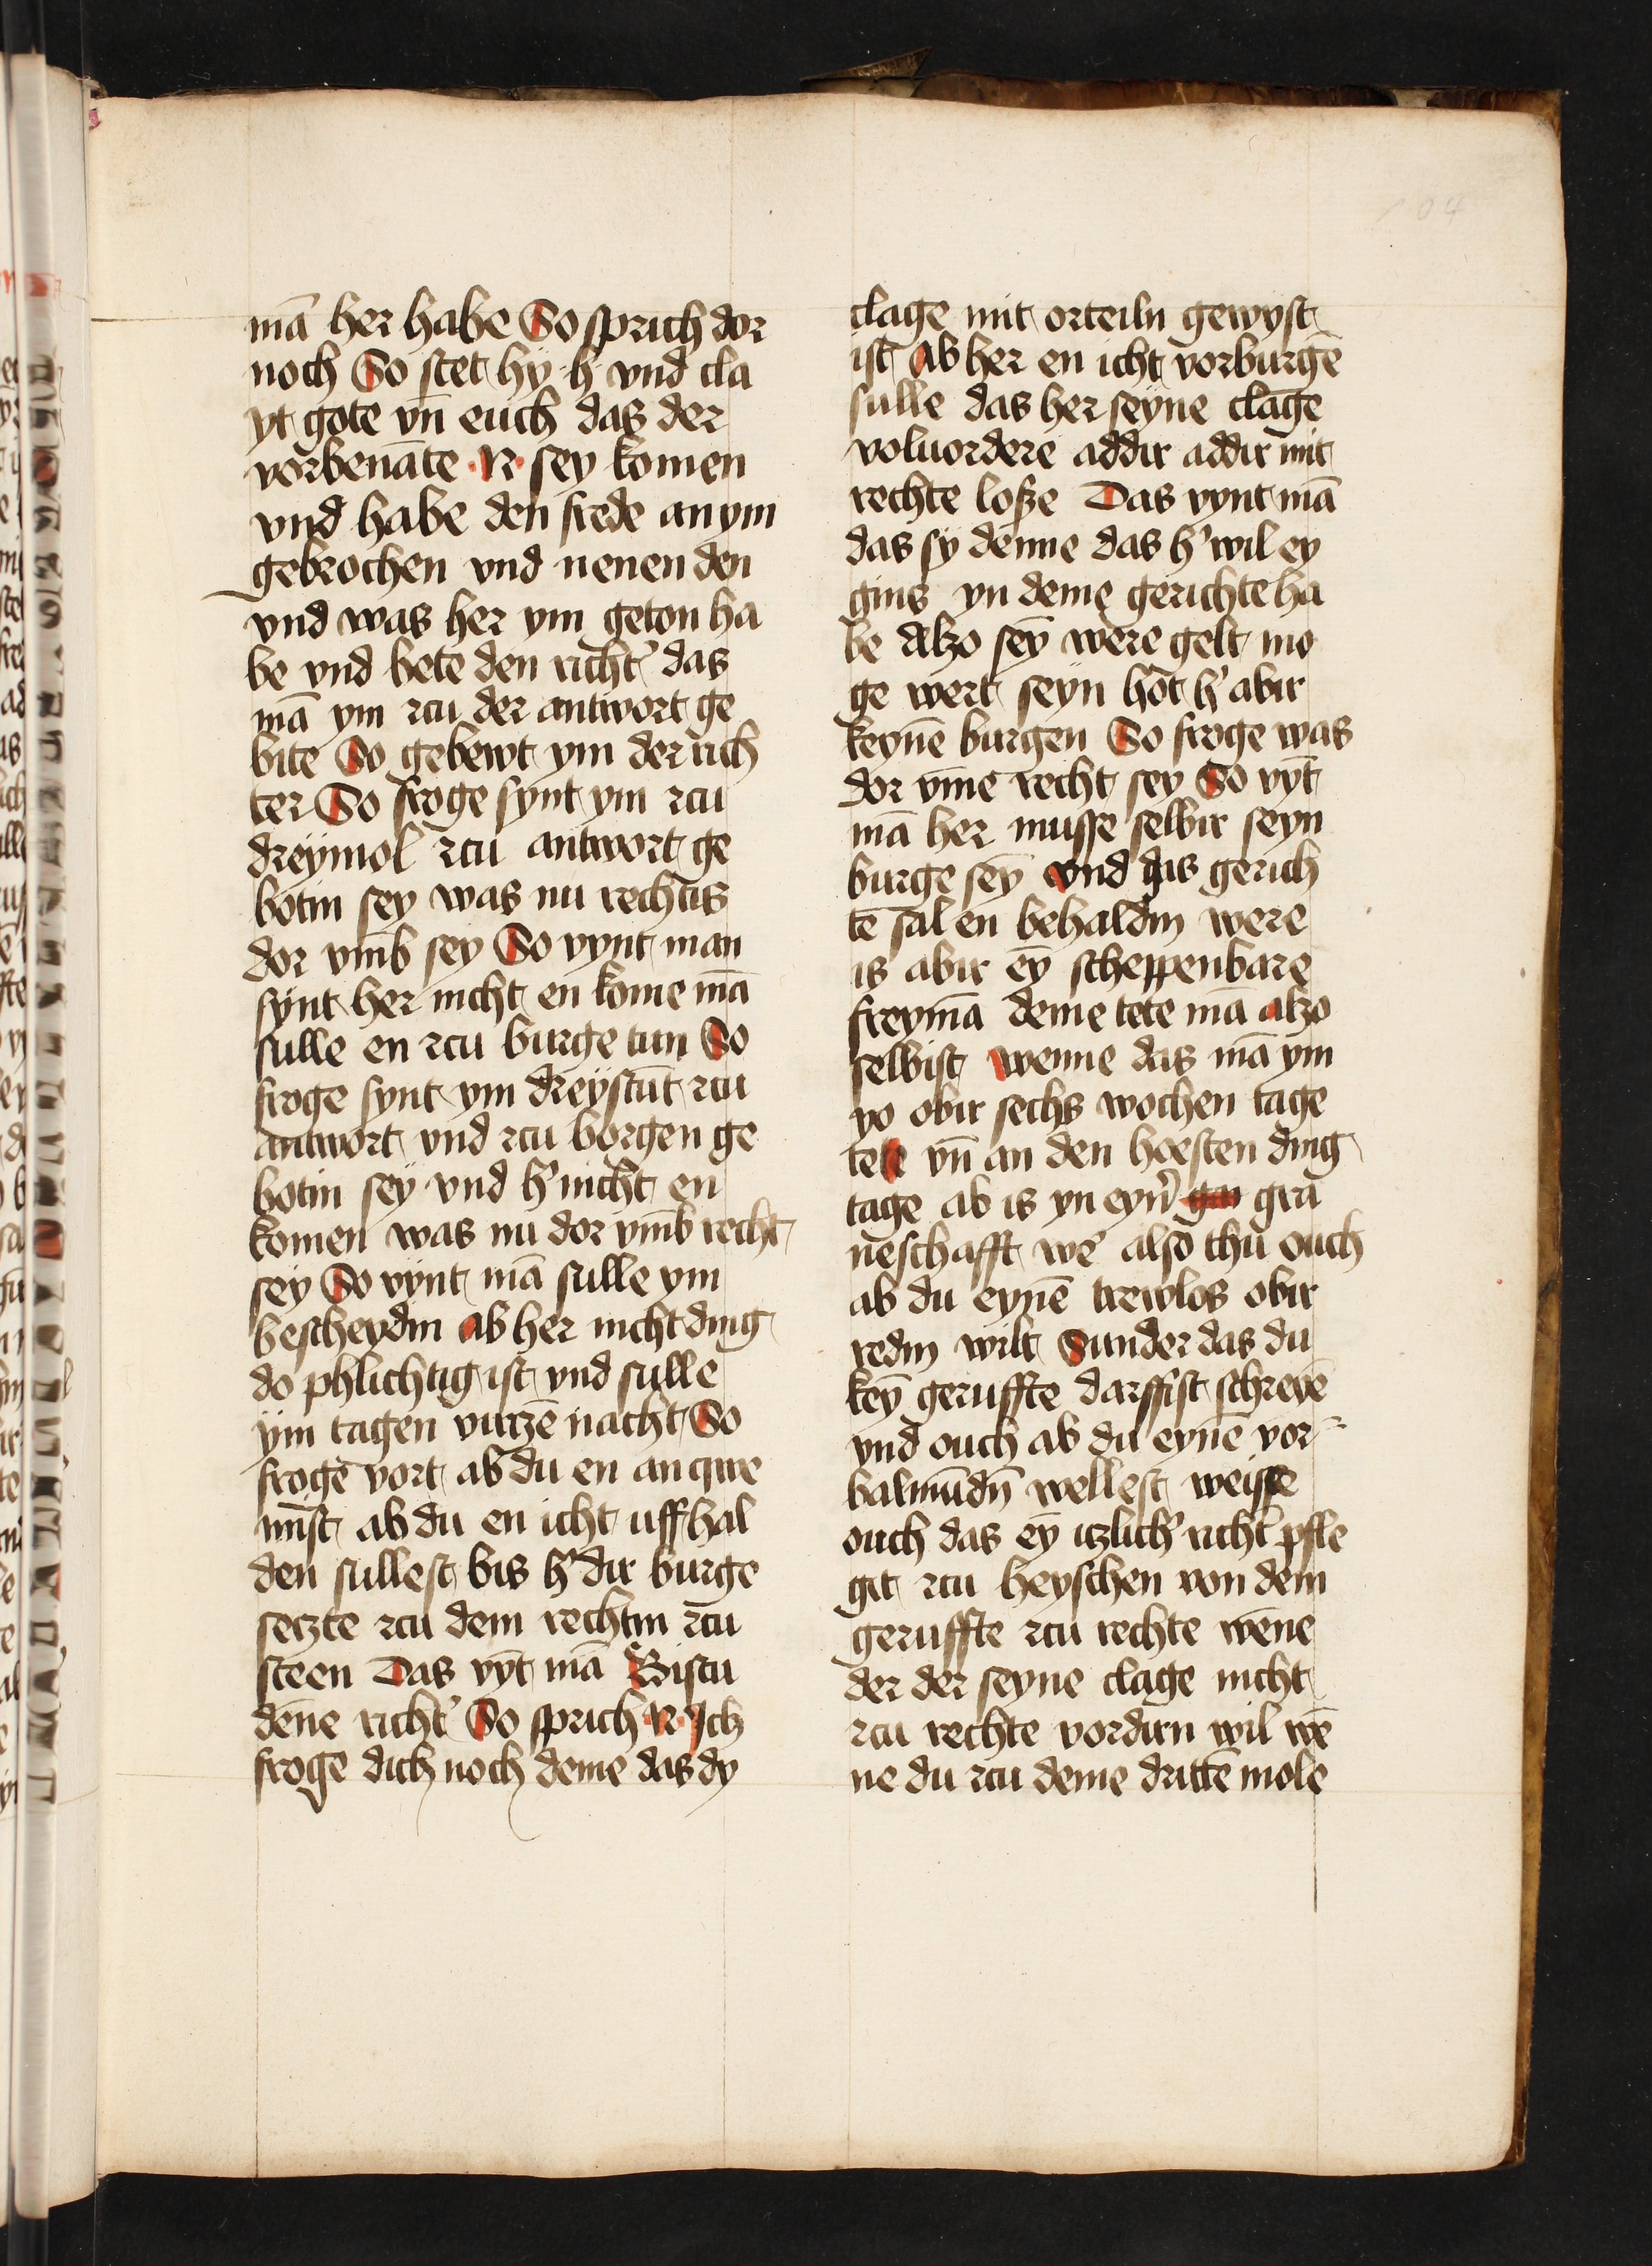 104
mā her habe So sprich dor
noch So stet hy ·h· vnd cla
yt gote vn̄ euch das der
vorbenāte ·N· sey komen
vnd habe den frede an ym
gebrochen vnd nenen den
vnd was her ym geton ha
be vnd bete den richt' das
mā ym zcu der antwort ge
bite So gebewt ym der rich
ter So froge synt ym zcu
dreymol zcu antwort ge
botin sey was nu rechtis
dor vm̄b sey So vynt man
synt her nicht en kome mā
sulle en zcu burge tun So
froge synt ym dreystūt zcu
antwort vnd zcu borgen ge
botin sey vnd h' nicht en
komen was nu dor vm̄b recht
sey So vynt mā sulle ym
bescheydin ab her nicht ding
do phlichtig ist vnd sulle
ym tagen virczē nacht So
froge vort ab du en an qwe
mist ab du en icht uffhal
den sullest bis h' dir burge
seczte zcu dem rechtin zcu
steen Das vȳt mā Bistu
dēne richt' So sprich ·N· Ich
froge dich noch deme das dy
clage mit orteiln gewyst
ist Ab her en icht vorburgē
sulle das her seyne clage
voluordere addir addir mit
rechte loße Das vynt mā
das sy denne das h' wil ey
gins yn deme gerichte ha
be Alzo sey were gelt mo
ge wert seyn hot h' abir
keynē burgen So froge was
dor vm̄e recht sey So vȳt
mā her musse selbir seyn
burge seȳ vnd das gerich
te sal en behaldin were
is abir eȳ scheppenbare
freymā deme tete mā alzo
selbist wenne das mā ym
yo obir sechs wochen tage
tete vn̄ an den hoesten ding
tage ab is yn eyn' gra
neschafft we' also thu ouch
ab du eynē trewlos obir
redin wilt Sunder das du
keȳ geruffte darffist schreyē
vnd ouch ab du eynē vor
balmūdn̄ wellest weisse
ouch das eȳ itzlich' richt' pfle
git zcu heyschen von dem
geruffte zcu rechte wēne
der der seyne clage nicht
zcu rechte vordirn wil wē
ne du zcu deme drittē mole